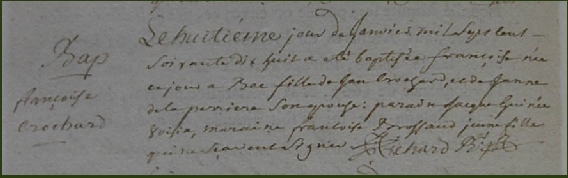 Bap
françoise
Crochard
Le huitième jour de Janvier mil Sept Cent
Soixante dix huit a été baptisée françoise née
ce jour a Bac fille de Jean Crochard, et de Janne
de la perriere Son epouse: parain Jacque
maraine francoise jeune fille
qui ne Scavent Signer Richard